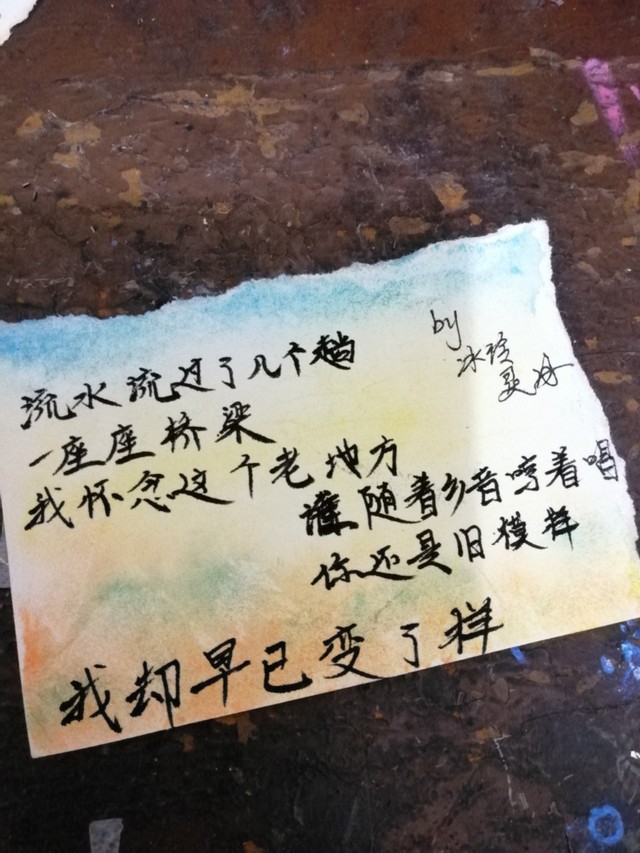 流水流过了几个趟
一座座桥梁
我怀念这个老地方
随着乡音哼着唱
你还是旧模样
我却早已变了样
by